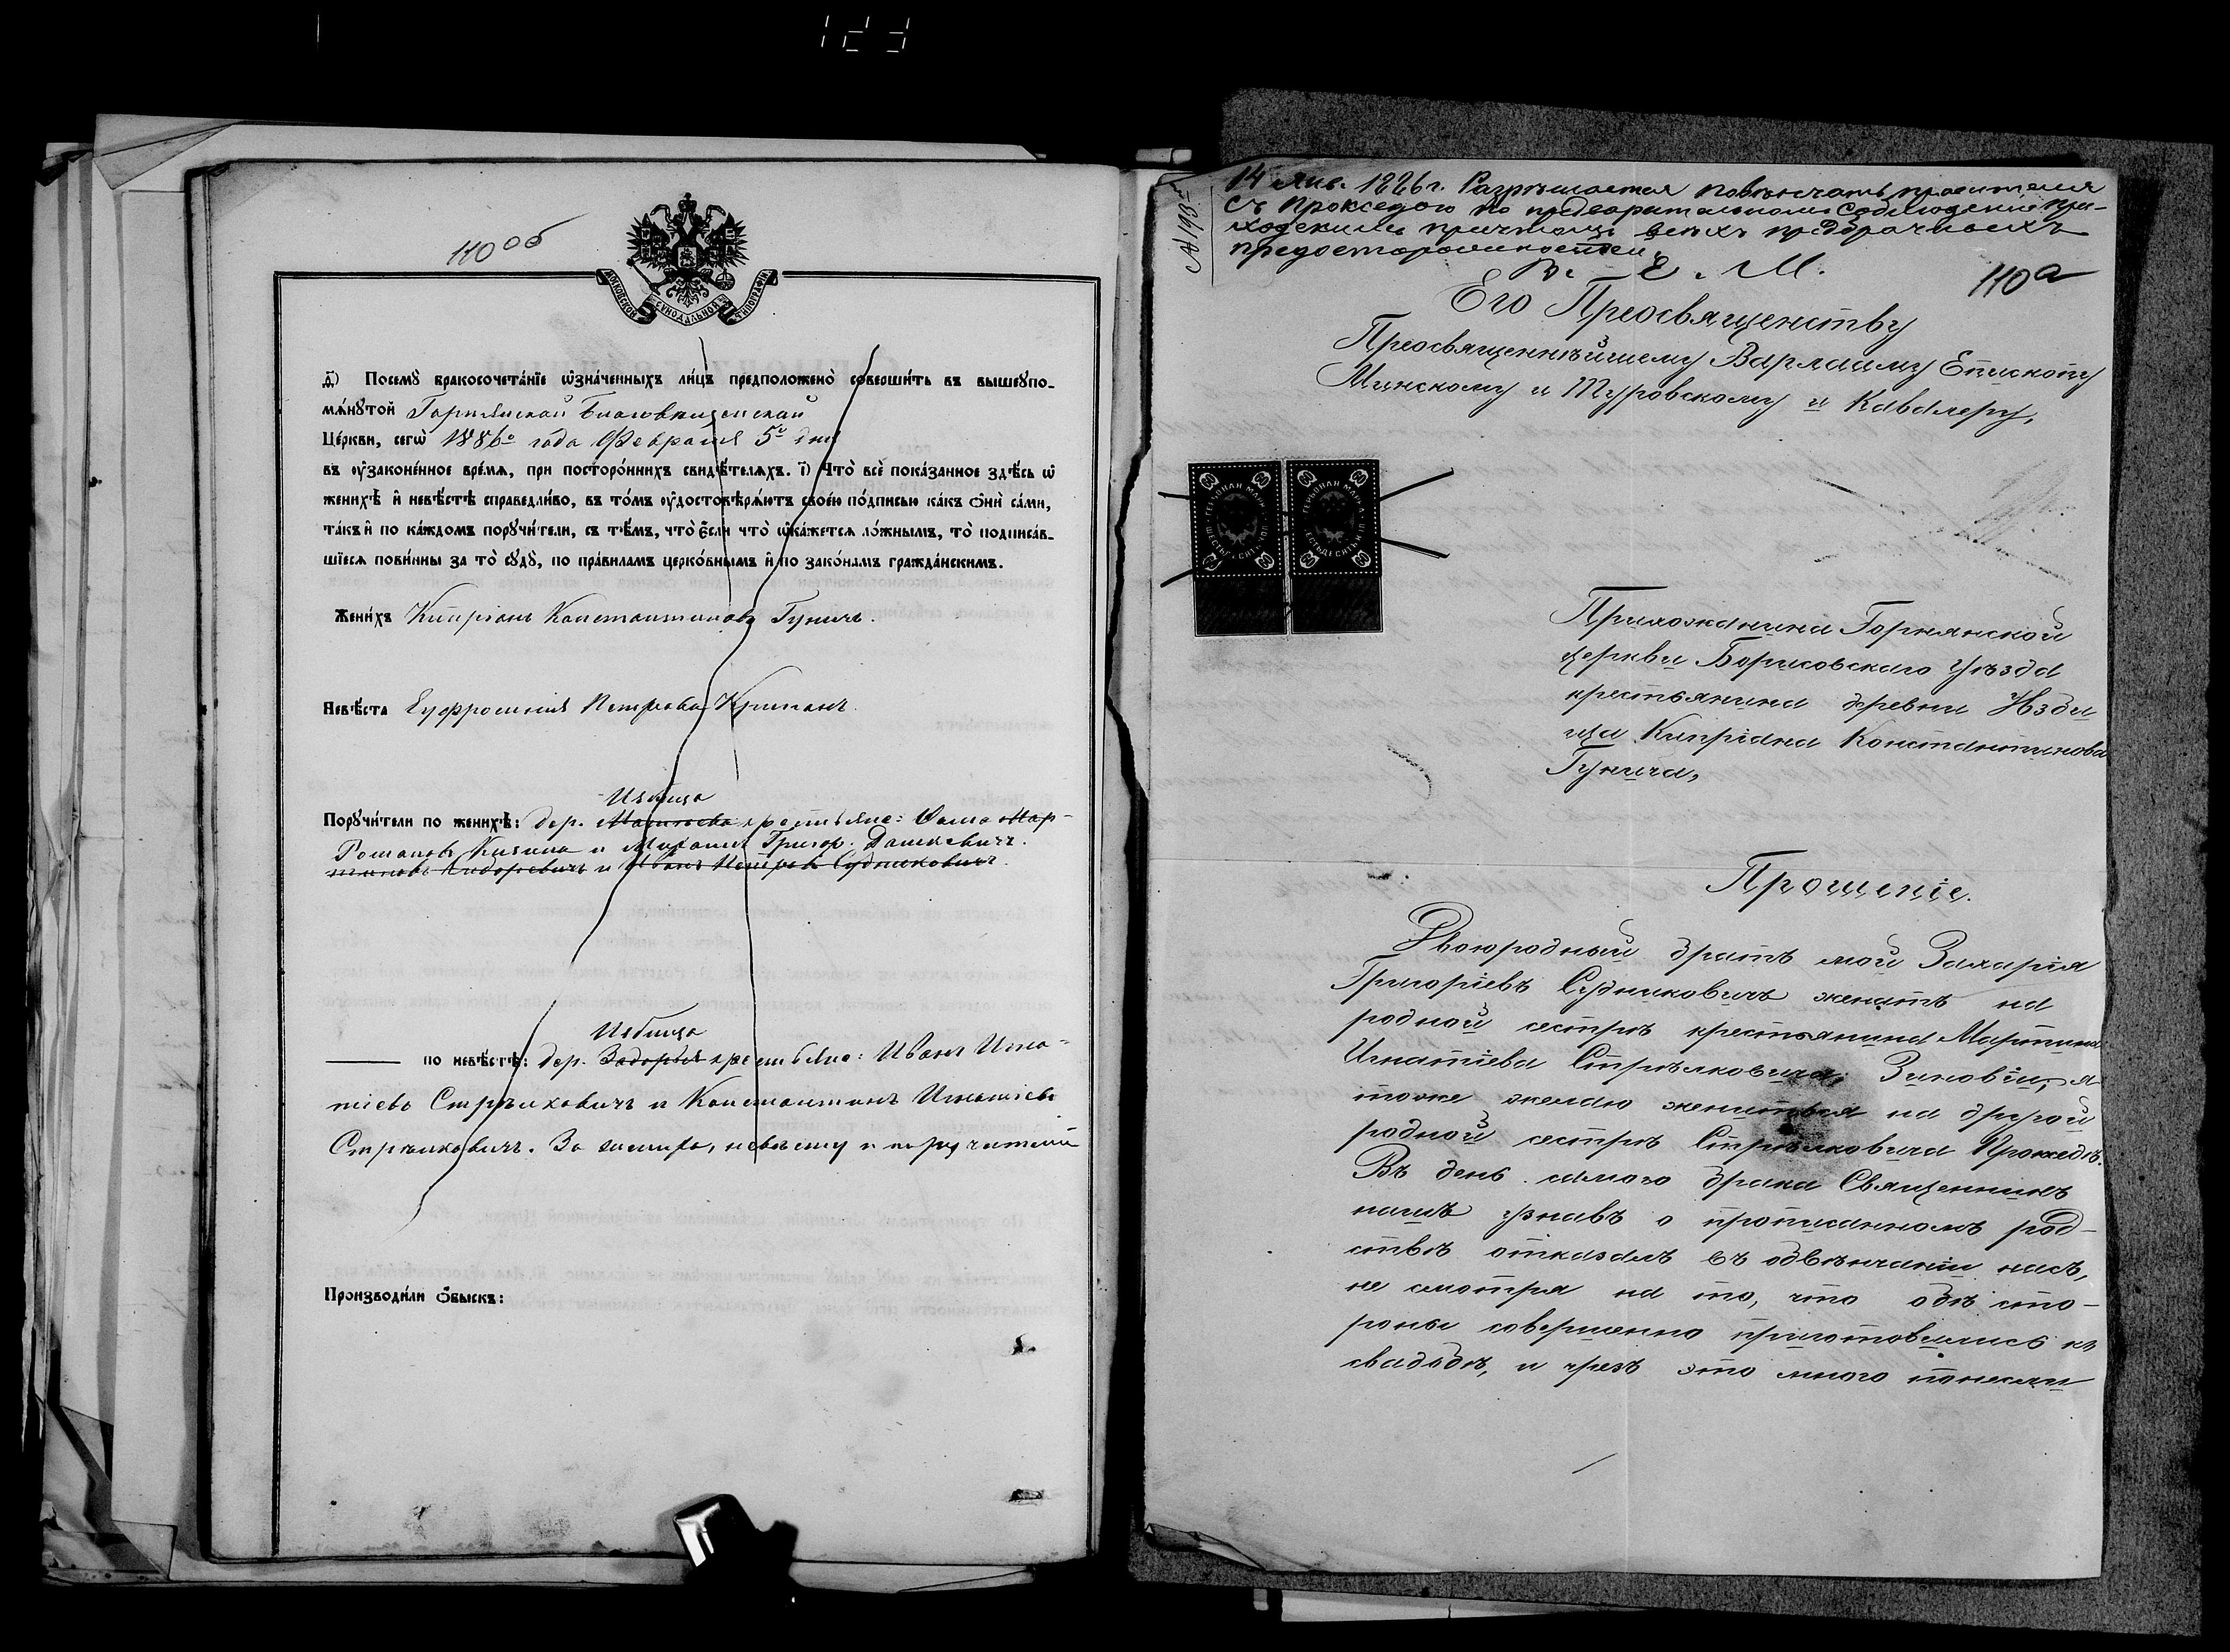 110 об
МОСКОВСКОЙ СѴНОДАЛЬНОЙ ТѴПОГРАФІИ
д҃) Посемꙋ̀ бракосочета́нїе ѡ҆зна́ченныхъ ли́цъ предположено̀ соверши́ть въ вышеꙋпо-
мѧ́нꙋтой Горнянской Благовѣщенской
Це́ркви, сегѡ̀ 1886го года Февраля 5го дня
въ ᲂу҆законе́нное вре́мѧ, при посторо́ннихъ свидѣ́телѧхъ. і҃) Что̀ всѐ пока́занное здѣ́сь ѡ҆
женихѣ̀ и҆ невѣ́стѣ справедли́во, въ то́мъ ᲂу҆достовѣрѧ́ютъ свое́ю по́дписью ка́къ ѻ҆нѝ са́ми,
та́къ и҆ по ка́ждомъ порꙋчи́тели, съ тѣ́мъ, что̀ є҆́сли что̀ ѡ҆ка́жетсѧ ло́жнымъ, то̀ подписа́в-
шїесѧ пови́нны за то̀ сꙋдꙋ̀, по пра́виламъ церко́внымъ и҆ по зако́намъ гражда́нскимъ.
Жени́хъ Кипріанъ Константиновъ Гуничъ.
Невѣ́ста Еуфросинія Петрова
Избища
Порꙋчи́тели по женихѣ̀: дер. крестьяне:
Романовъ и Михаилъ Григор. Дашкевичъ.
и Иванъ Петровъ Судниковичъ.
Избища
по невѣ́стѣ: дер. Задорье крестьяне: Иванъ Игна-
тіевъ Стрѣлковичъ и Константинъ Игнатіевъ
Стрѣлковичъ. За жениха, невѣсту и поручителей
Производи́ли ѻ҆́быскъ:
14 Янв. 1886 г. Разрѣшается повѣнчать просителя
съ Прокседою по предварительномъ соблюденіи при-
ходскимъ причтомъ всѣхъ предбрачныхъ
предосторожностей.
В. Е. М.
№ 198
110а
Его Преосвященству
Преосвященнѣйшему Варлааму Епископу
Минскому и Туровскому и Кавалеру,
ГЕРБОВАЯ МАРКА ШЕСТЬДЕСЯТЪ КОП. 60
ГЕРБОВАЯ МАРКА ШЕСТЬДЕСЯТЪ КОП. 60
Прихожанина Горнянской
церкви Борисовскаго Уѣзда
крестьянина деревни Изби
ща Кипріана Константинова
Гунича,
Прошеніе.
Двоюродный братъ мой Захарія
Григоріевъ Судниковичъ женатъ на
родной сестрѣ крестьянина Мартина
Игнатіева Стрѣлковича, Зиновіи, я
тоже желаю жениться на другой
родной сестрѣ Стрѣлковича Прокседѣ.
Въ день самого брака Священникъ
нашъ узнавъ о прописанномъ род-
ствѣ отказалъ въ обвѣнчаніи насъ,
не смотря на то, что обѣ сто-
роны совершенно приготовились къ
свадьбѣ, и чрезъ это много понесли